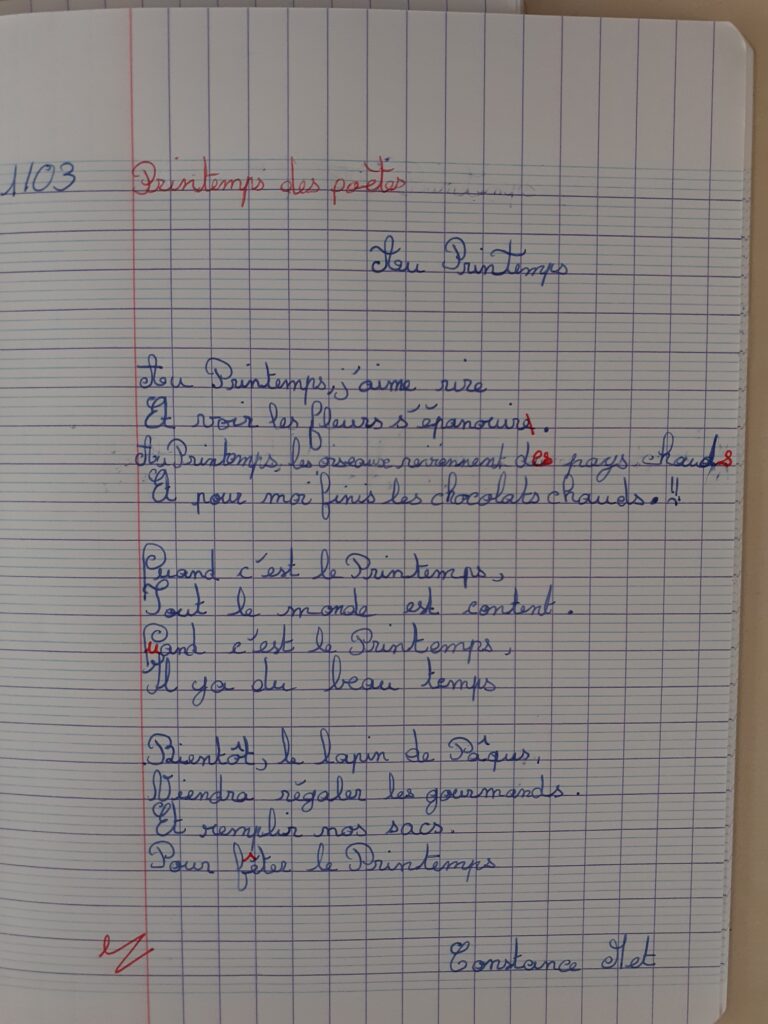 1103 Printemps des poètes
Au Printemps
Au Printemps, j'aime rire
Et voir les fleurs s'épanouir.
Au Printemps, les oiseaux reviennent des pays chauds
Et pour moi finis les chocolats chauds. !!
Quand c'est le Printemps,
Tout le monde est content.
Quand c'est le Printemps,
Il ya du beau temps
Bientôt, le lapin de Pâqus,
Viendra régaler les gourmands.
Et remplir nos sacs.
Pour fêter le Printemps
Constance